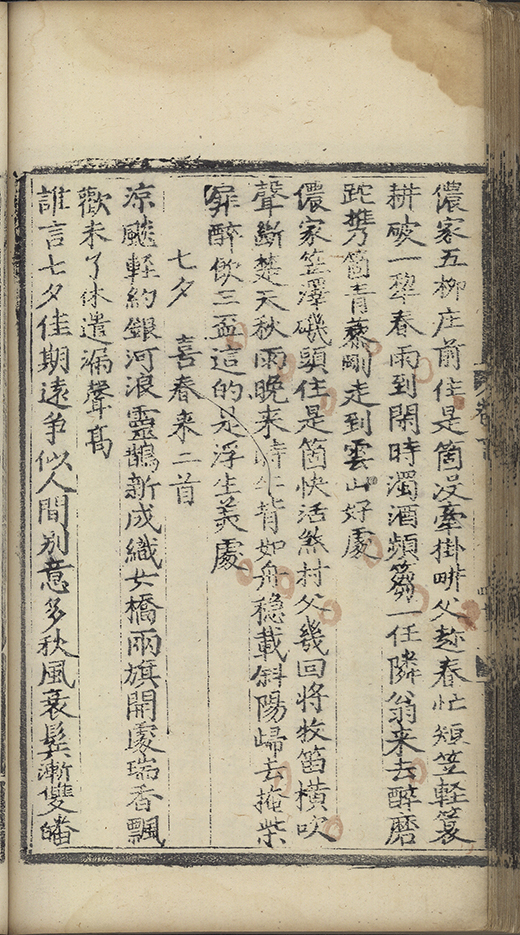 儂家五柳庄前住是箇没牽掛畊父趂春忙短笠軽蓑
耕破一犂春雨到閑時濁酒頻篘一任隣翁来去醉磨
跎携箇青藜剛走到雲山好處
儂家笠澤磯頭住是箇快活煞村父幾回将牧笛横吹
聲断楚天秋雨晚来時牛背如舟穏載斜陽歸去掩柴
扉醉飲三盃這的是浮生美處
七夕 喜春来二首
涼飈軽約銀河浪靈鵲新成織女橋兩旗開處瑞香飄
歡未了休遣漏聲髙
誰言七夕佳期遠争似人間别意多秋風衰髩漸雙皤
卷下